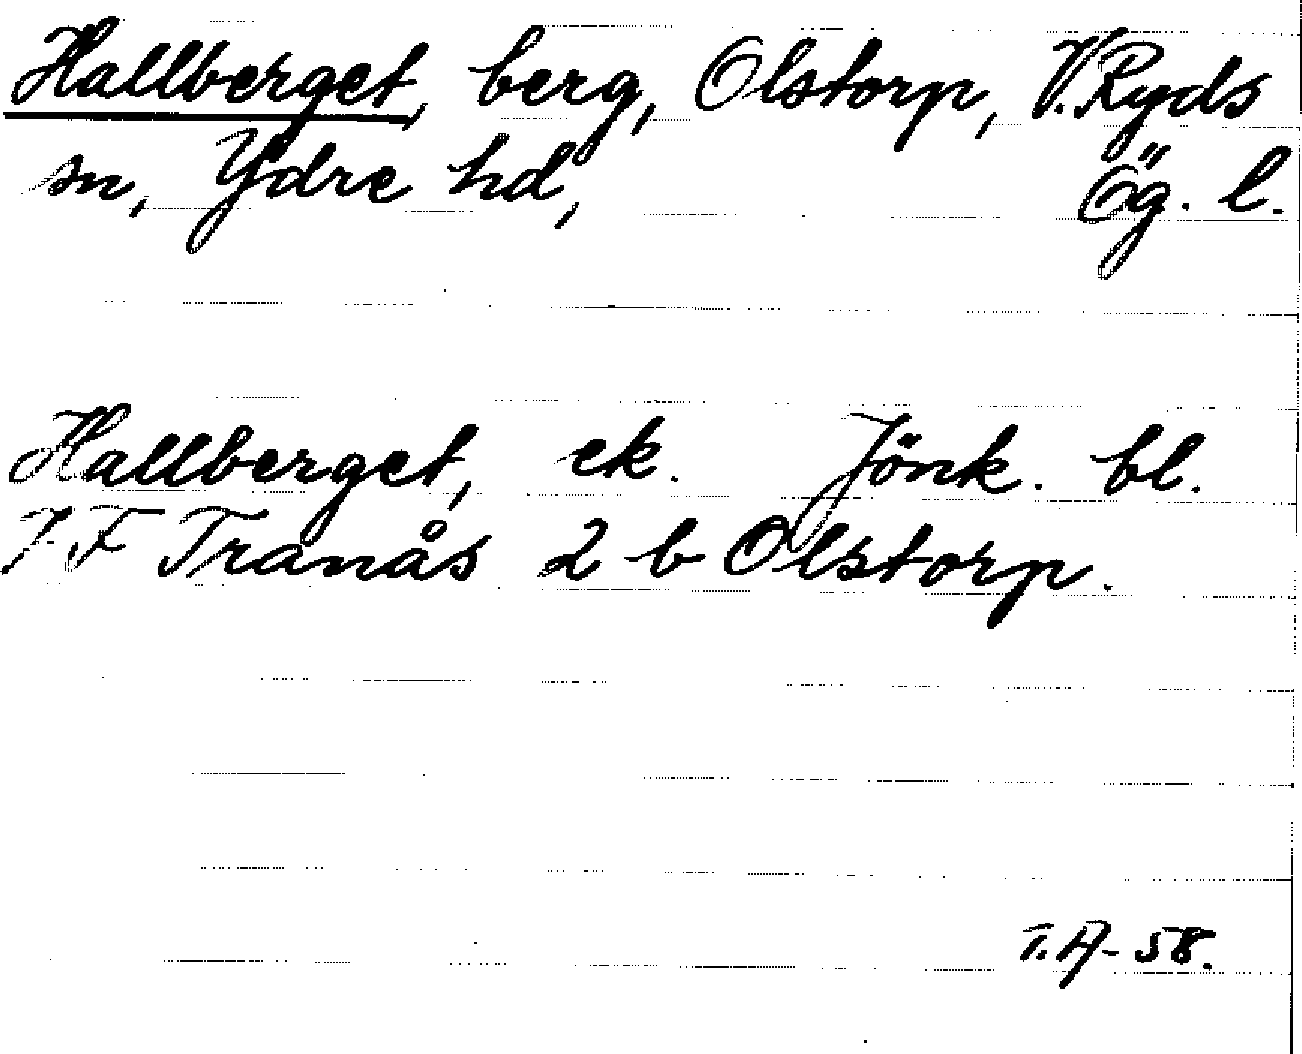 Hallberget, berg, Olstorp, V. Ryds
sn, Ydre hd, Ög. l.
Hallberget, ek. Jönk. bl.
7 F Tranås 2 b Olstorp.
T.A-58.